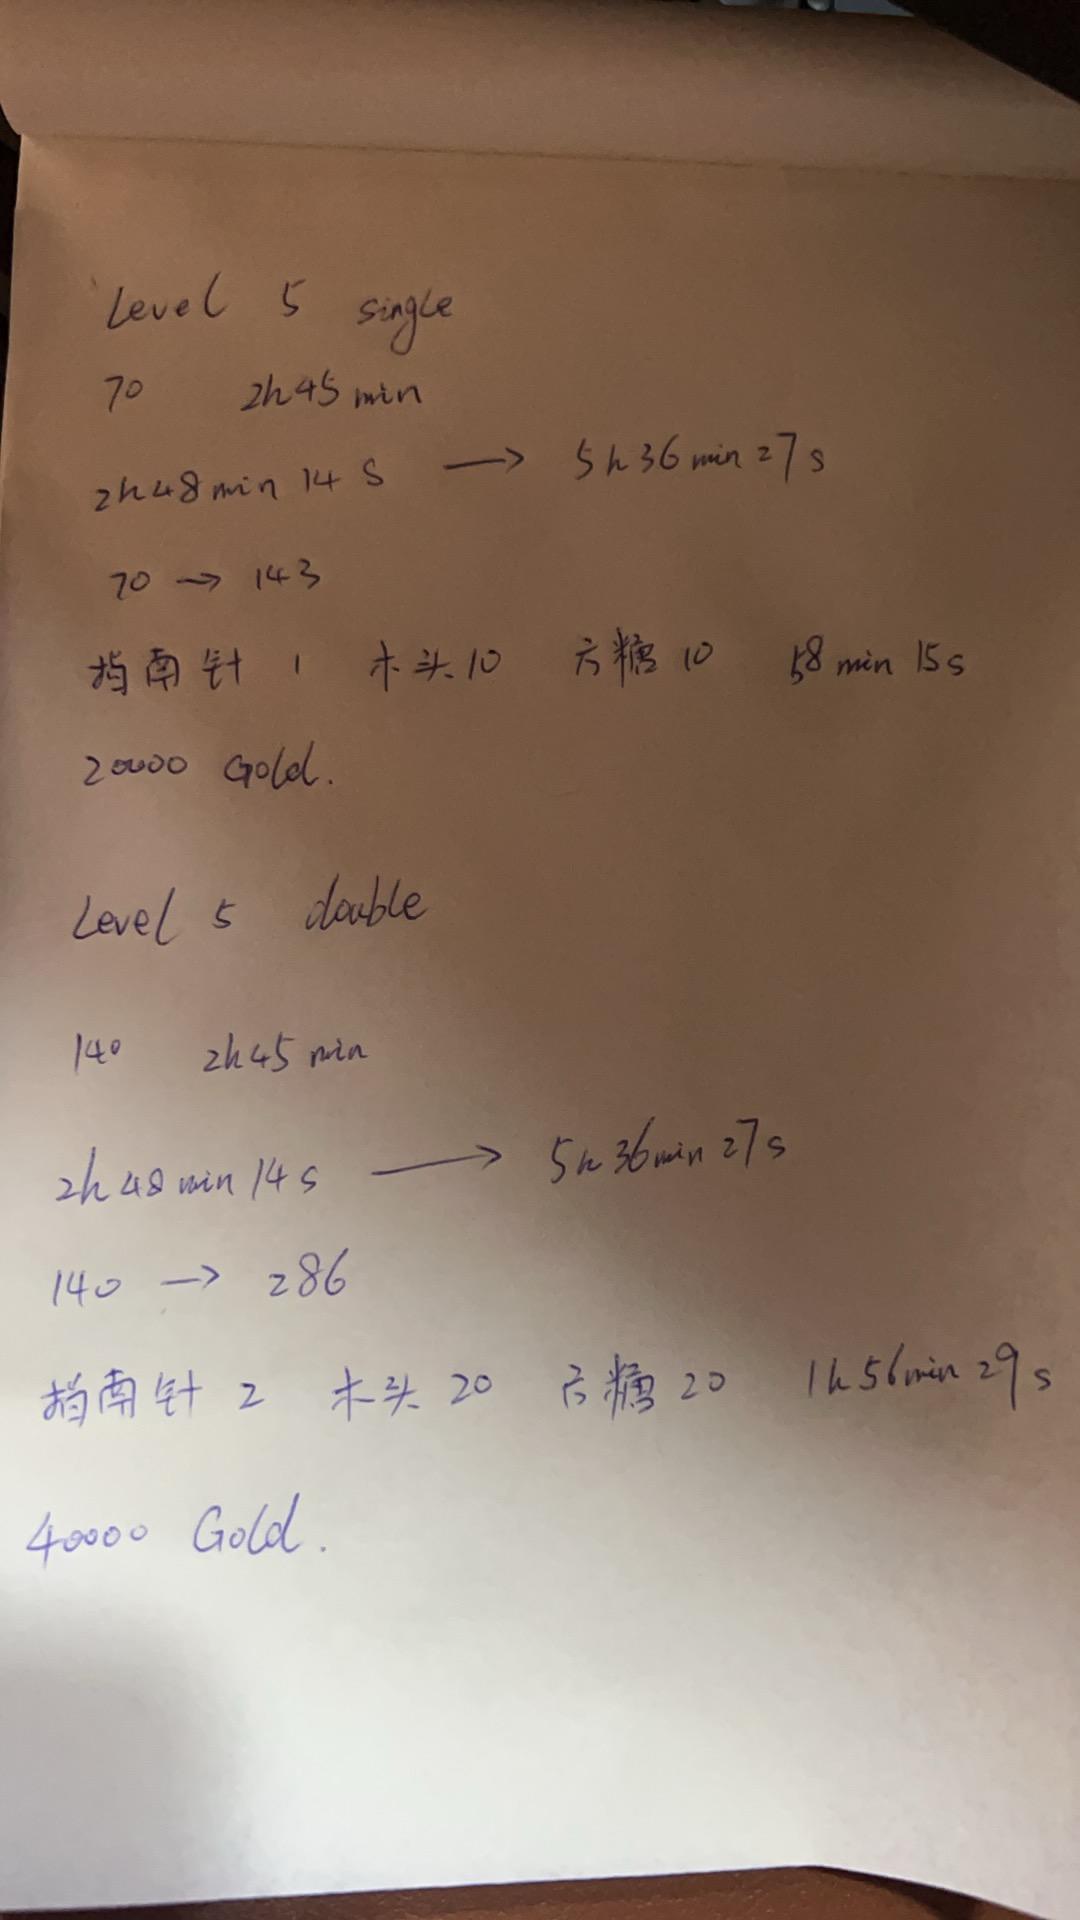 Level 5 single
70 2h45min
2h48min 14s → 5h36min27s
70 → 143
指南针 1 木头10 方糖10 58min 15s
20000 Gold.
Level 5 double
140 2h45min
2h48min14s → 5h36min27s
140 → 286
指南针 2 木头20 方糖20 1h56min29s
40000 Gold.